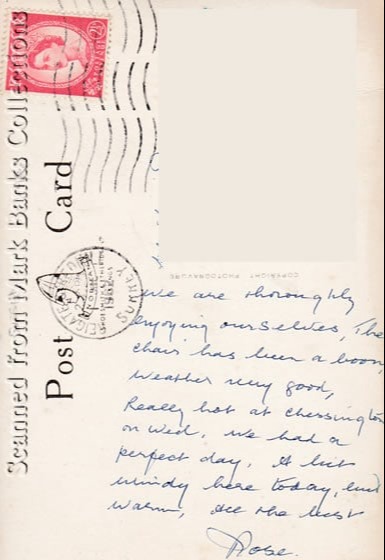 Scanned from Mark Banks Collections
Post Card
2½D
REIGATE
SURREY
COPYRIGHT PHOTOGRAVURE
We are thoroughly
enjoying ourselves, The
chair has been a boon,
weather very good,
Really hot at Chessington
on Wed, we had a
perfect day, A bit
windy here today, but
warm, All the best
Rose.